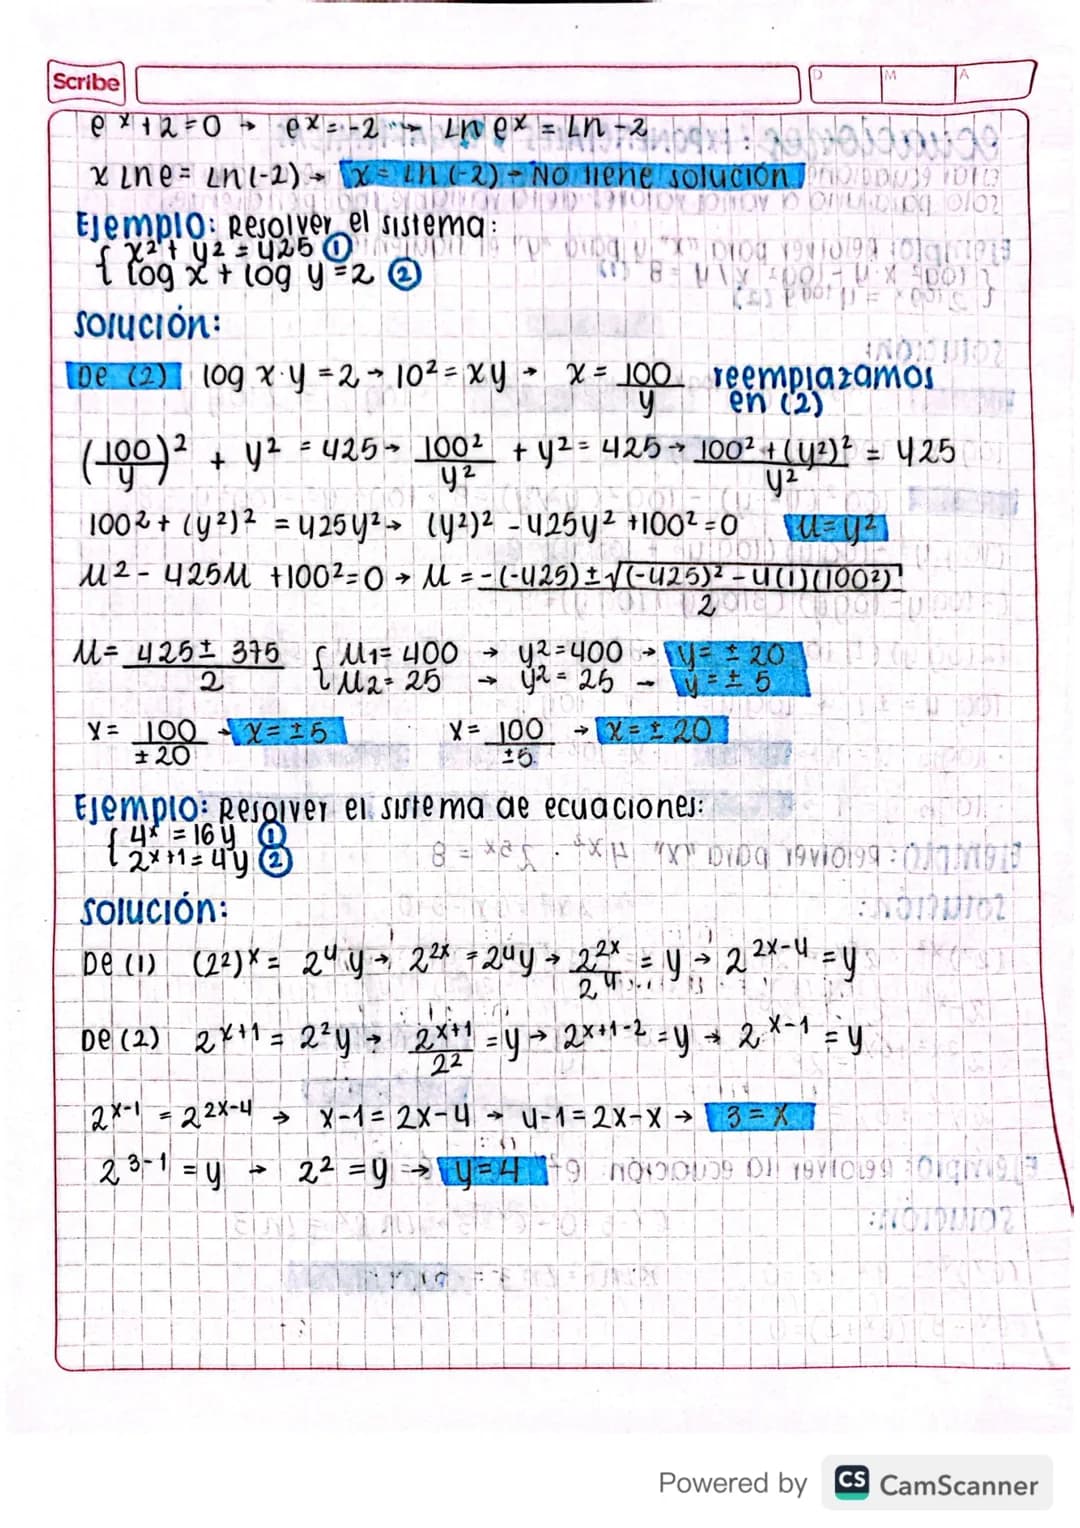 Scribe D M A
e^x + 2 = 0 → e^x = -2 → Ln e^x = Ln -2
x Ln e = Ln(-2) → x = Ln (-2) → No tiene solución
Ejemplo: Resolver el sistema:
{ x² + y² = 425 ①
{ log x + log y = 2 ②
Solución:
De (2) log x·y = 2 → 10² = xy → x = 100/y reemplazamos
en (2)
(100/y)² + y² = 425 → 100²/y² + y² = 425 → 100² + (y²)²/y² = 425
100² + (y²)² = 425y² → (y²)² - 425y² + 100² = 0 u = y²
u² - 425u + 100² = 0 → u = -(-425) ± √(-425)² - 4(1)(100²)/2
u = 425 ± 375/2 { u1 = 400 → y² = 400 → y = ± 20
{ u2 = 25 → y² = 25 → y = ± 5
x = 100/±20 → x = ±5 x = 100/±5 → x = ± 20
Ejemplo: Resolver el sistema de ecuaciones:
{ 4^x = 16y ①
{ 2^x+1 = 4y ②
Solución:
De (1) (2²)^x = 2⁴y → 2^2x = 2⁴y → 2^2x/2⁴ = y → 2^2x-4 = y
De (2) 2^x+1 = 2²y → 2^x+1/2² = y → 2^x+1-2 = y → 2^x-1 = y
2^x-1 = 2^2x-4 → x-1 = 2x-4 → 4-1 = 2x-x → 3 = x
2^3-1 = y → 2² = y → y = 4
Powered by CS CamScanner